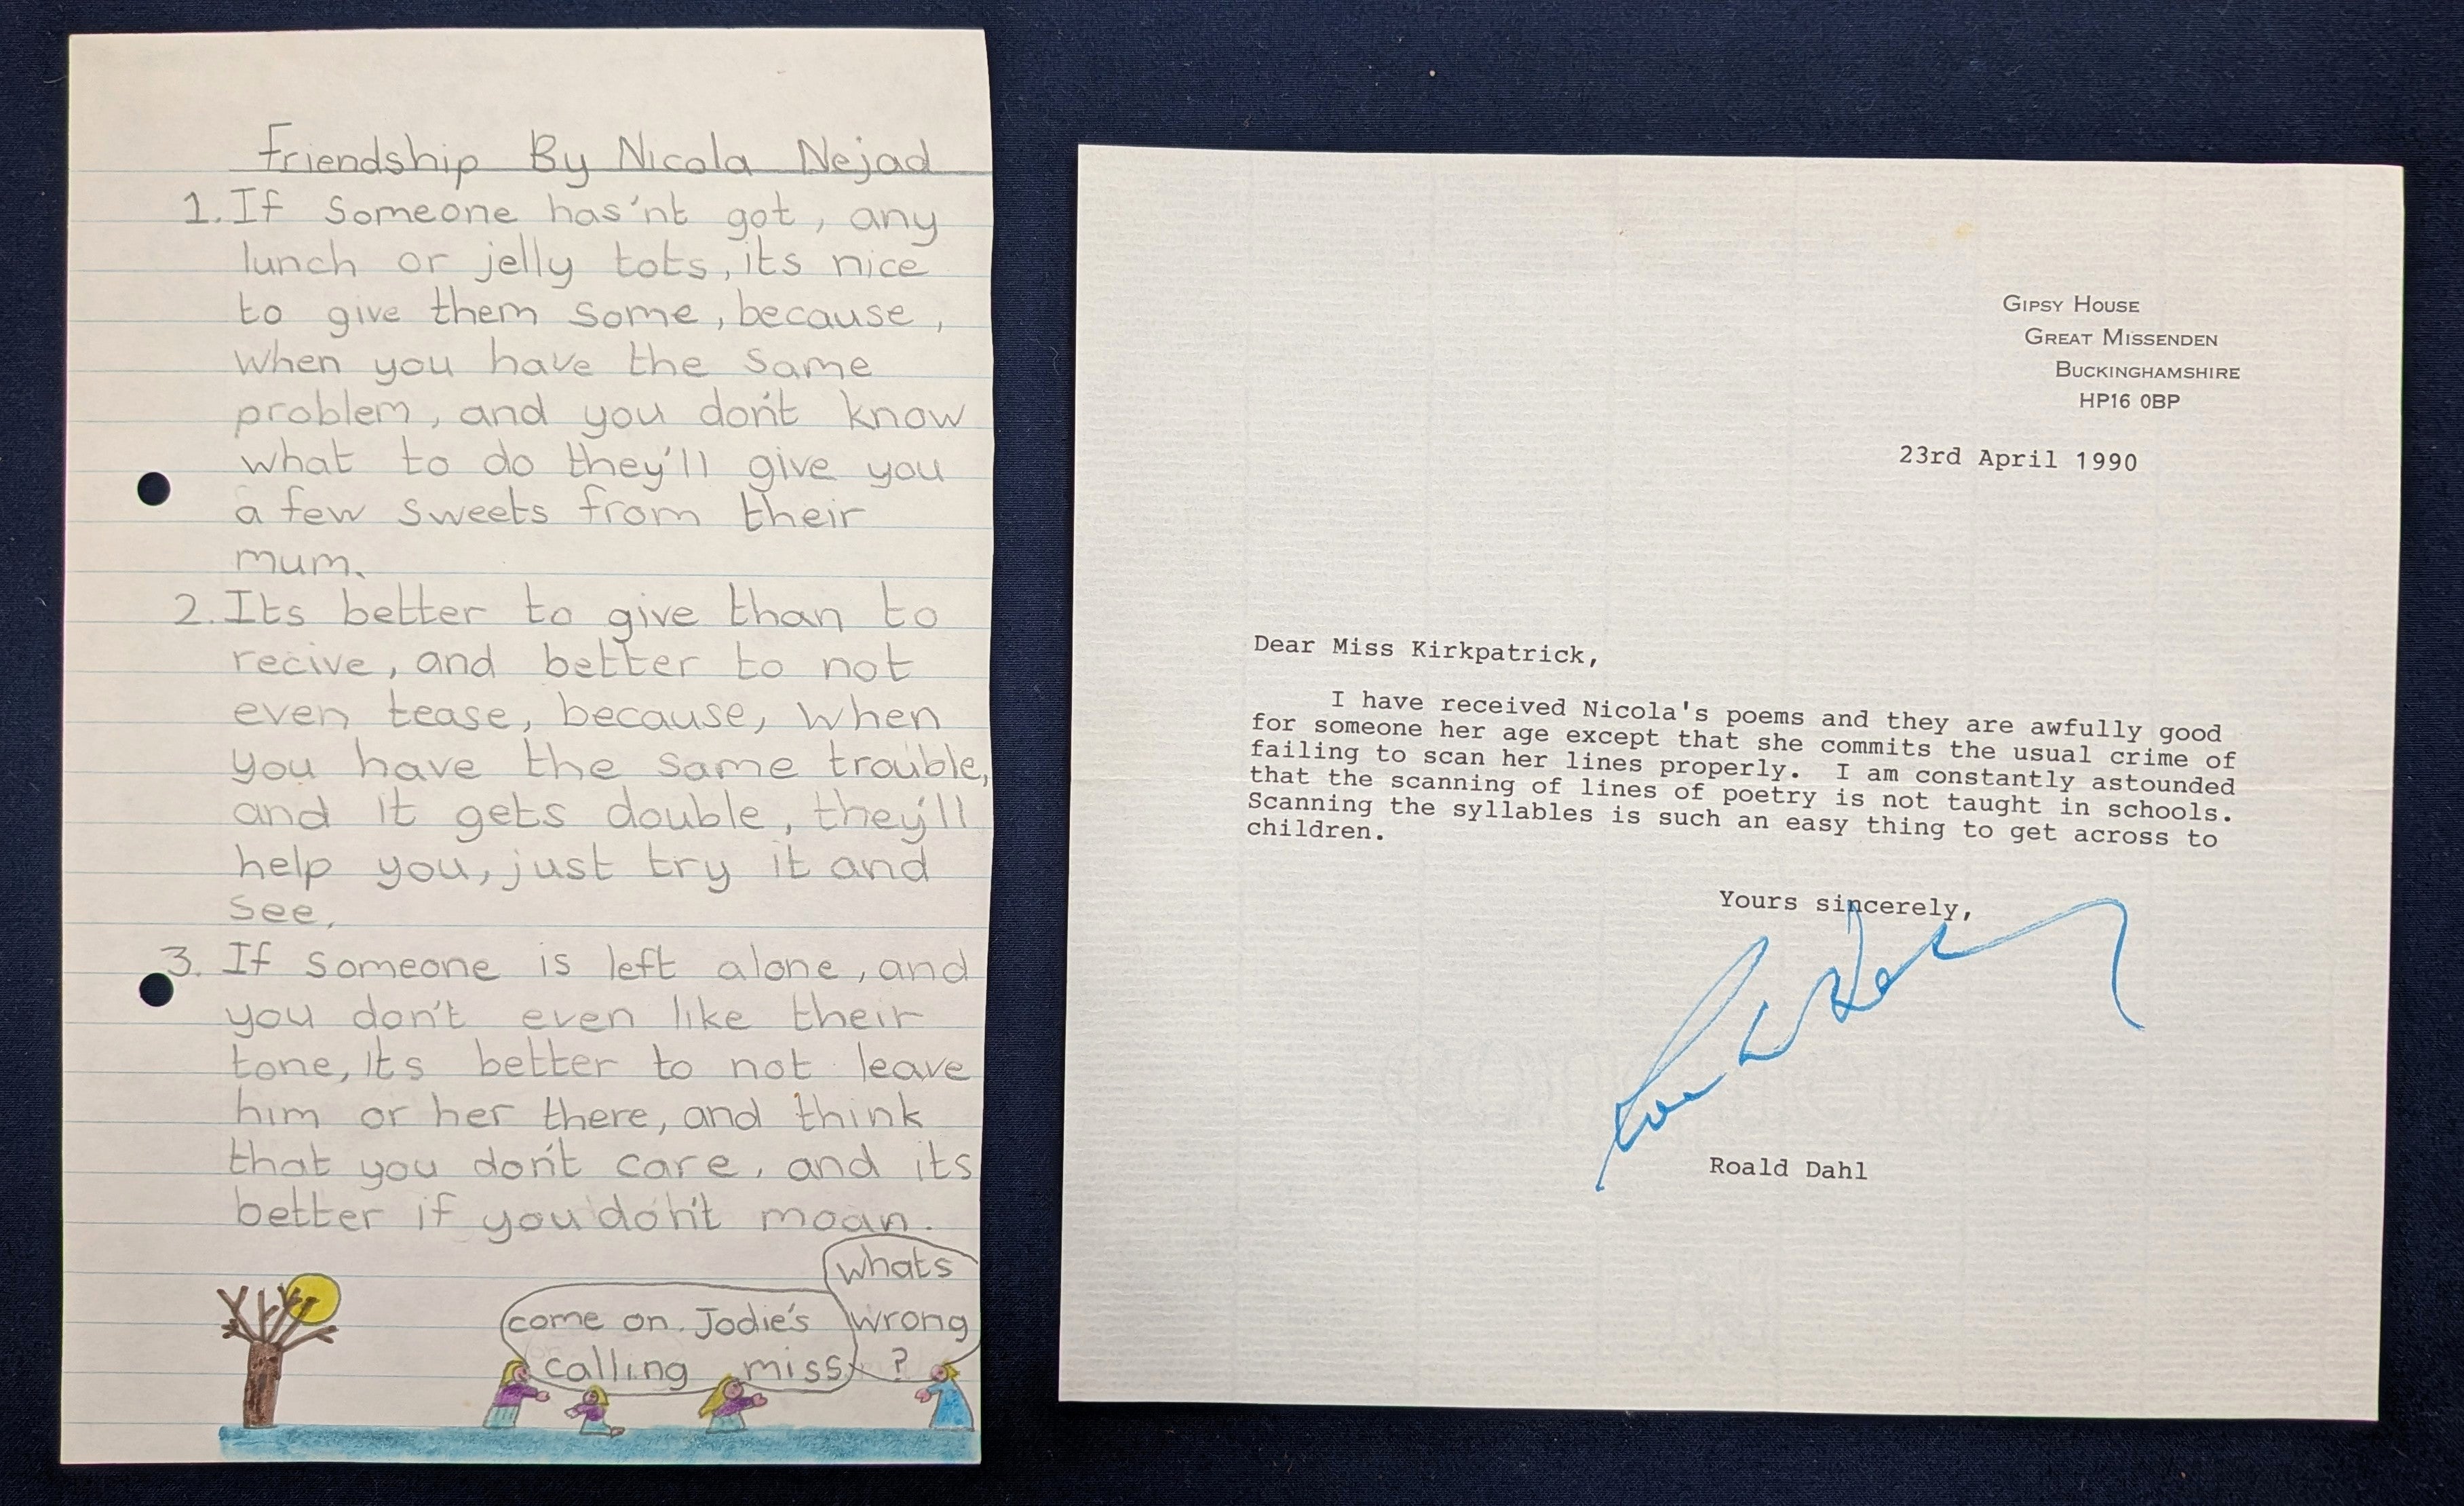 Friendship By Nicola Nejad
1. If someone has'nt got, any
lunch or jelly tots, its nice
to give them some, because,
when you have the same
problem, and you don't know
what to do they'll give you
a few sweets from their
mum.
2. Its better to give than to
recive, and better to not
even tease, because, when
you have the same trouble,
and it gets double, they'll
help you, just try it and
see,
3. If someone is left alone, and
you don't even like their
tone, its better to not leave
him or her there, and think
that you don't care, and its
better if you don't moan.
come on. Jodie's
calling miss
whats
wrong
?
GIPSY HOUSE
GREAT MISSENDEN
BUCKINGHAMSHIRE
HP16 0BP
23rd April 1990
Dear Miss Kirkpatrick,
I have received Nicola's poems and they are awfully good
for someone her age except that she commits the usual crime of
failing to scan her lines properly. I am constantly astounded
that the scanning of lines of poetry is not taught in schools.
Scanning the syllables is such an easy thing to get across to
children.
Yours sincerely,
Roald Dahl